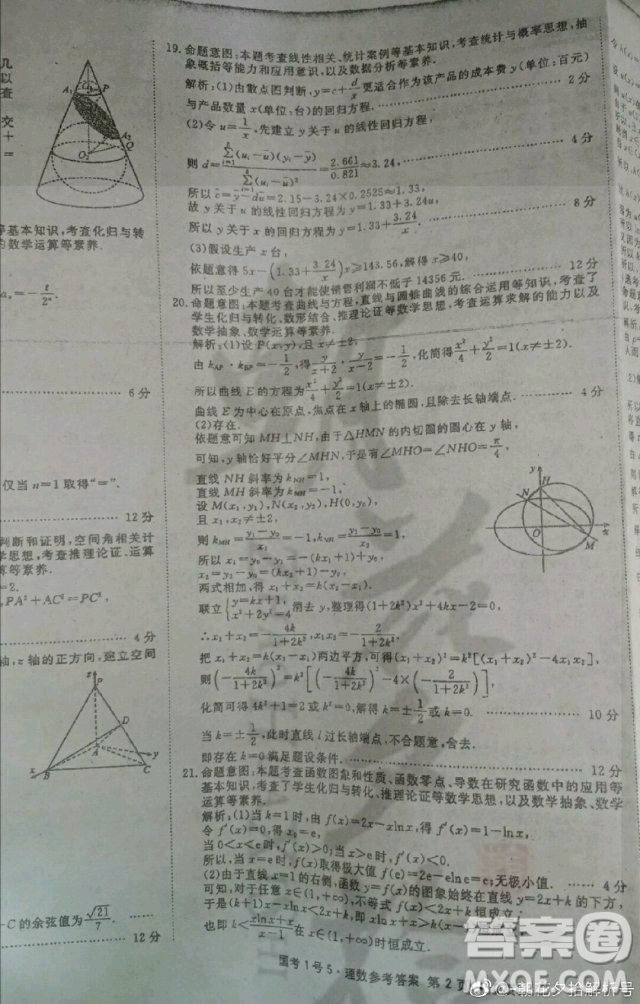 几
以
查
交
+
=
A₁
O₁
P
A₂
Q
O₂
等基本知识,考查化归与转
的数学运算等素养.
6分
仅当n=1取得“=”.
12分
判断和证明,空间角相关计
学思想,考查推理论证、运算
算等素养.
=2,
,PA²+AC²=PC²,
4分
轴,z轴的正方向,建立空间
z
P
D
A
y
B
C
x
-C的余弦值为√21/7.
12分
19.命题意图:本题考查线性相关、统计案例等基本知识,考查统计与概率思想,抽
象概括等能力和应用意识,以及数据分析等素养.
解析:(1)由散点图判断,y=c+d/x更适合作为该产品的成本费y(单位:百元)
与产品数量x(单位:台)的回归方程. 2分
(2)令u=1/x,先建立y关于u的线性回归方程,
4分
所以ĉ=ȳ-d̂ū=2.15-3.24×0.2525≈1.33,
故y关于u的线性回归方程为y=1.33+3.24u,
所以y关于x的回归方程为y=1.33+3.24/x. 8分
(3)假设生产x台,
依题意得5x-(1.33+3.24/x)x≥143.56,解得x≥40,
所以至少生产40台才能使销售利润不低于14356元. 12分
20.命题意图:本题考查曲线与方程,直线与圆锥曲线的综合运用等知识,考查了
学生化归与转化、数形结合、推理论证等数学思想,考查运算求解的能力以及
数学抽象、数学运算等素养.
解析:(1)设P(x,y),且x≠±2,
由k_AP·k_BP=-1/2,得y/(x+2)·y/(x-2)=-1/2,化简得x²/4+y²/2=1(x≠±2).
所以曲线E的方程为x²/4+y²/2=1(x≠±2).
曲线E为中心在原点,焦点在x轴上的椭圆,且除去长轴端点. 4分
(2)存在.
依题意可知MH⊥NH,由于△HMN的内切圆的圆心在y轴,
可知,y轴恰好平分∠MHN,于是有∠MHO=∠NHO=π/4,
直线NH斜率为k_NH=1,
直线MH斜率为k_MH=-1,
设M(x₁,y₁),N(x₂,y₂),H(0,y₀),
且x₁,x₂≠±2,
则k_MH=(y₁-y₀)/x₁=-1,k_NH=(y₂-y₀)/x₂=1,
所以x₁=y₀-y₁=-(kx₁+1)+y₀,
x₂=y₂-y₀=(kx₂+1)-y₀,
两式相加,得x₁+x₂=k(x₂-x₁).
联立{y=kx+1, x²+2y²=4 消去y,整理得(1+2k²)x²+4kx-2=0,
∴x₁+x₂=-4k/(1+2k²),x₁x₂=-2/(1+2k²).
把x₁+x₂=k(x₂-x₁)两边平方,可得(x₁+x₂)²=k²[(x₁+x₂)²-4x₁x₂],
则(-4k/(1+2k²))²=k²[(-4k/(1+2k²))²-4×(-2/(1+2k²))],
化简可得4k²+1=2或k²=0,解得k=±1/2或k=0. 10分
当k=±1/2,此时直线l过长轴端点,不合题意,舍去.
即存在k=0满足题设条件. 12分
y
H
N
O
x
M
21.命题意图:本题考查函数图象和性质、函数零点、导数在研究函数中的应用等
基本知识,考查了学生化归与转化、推理论证等数学思想,以及数学抽象、数学
运算等素养.
解析:(1)当k=1时,由f(x)=2x-xlnx,得f′(x)=1-lnx,
令f′(x)=0,得x₀=e,
当0<x<e时,f′(x)>0;当x>e时,f′(x)<0.
所以,当x=e时,f(x)取得极大值f(e)=2e-elne=e;无极小值. 4分
(2)由于直线x=1的右侧,函数y=f(x)的图象始终在直线y=2x+k的下方,
可知,对于任意x∈(1,+∞),不等式f(x)<2x+k恒成立,
于是(k+1)x-xlnx<2x+k,即xlnx+x>k(x-
也即k<(xlnx+x)/(x-1)在x∈(1,+∞)时恒成立.
国考1号5·理数参考答案 第2页
答案圈
MXQE.COM